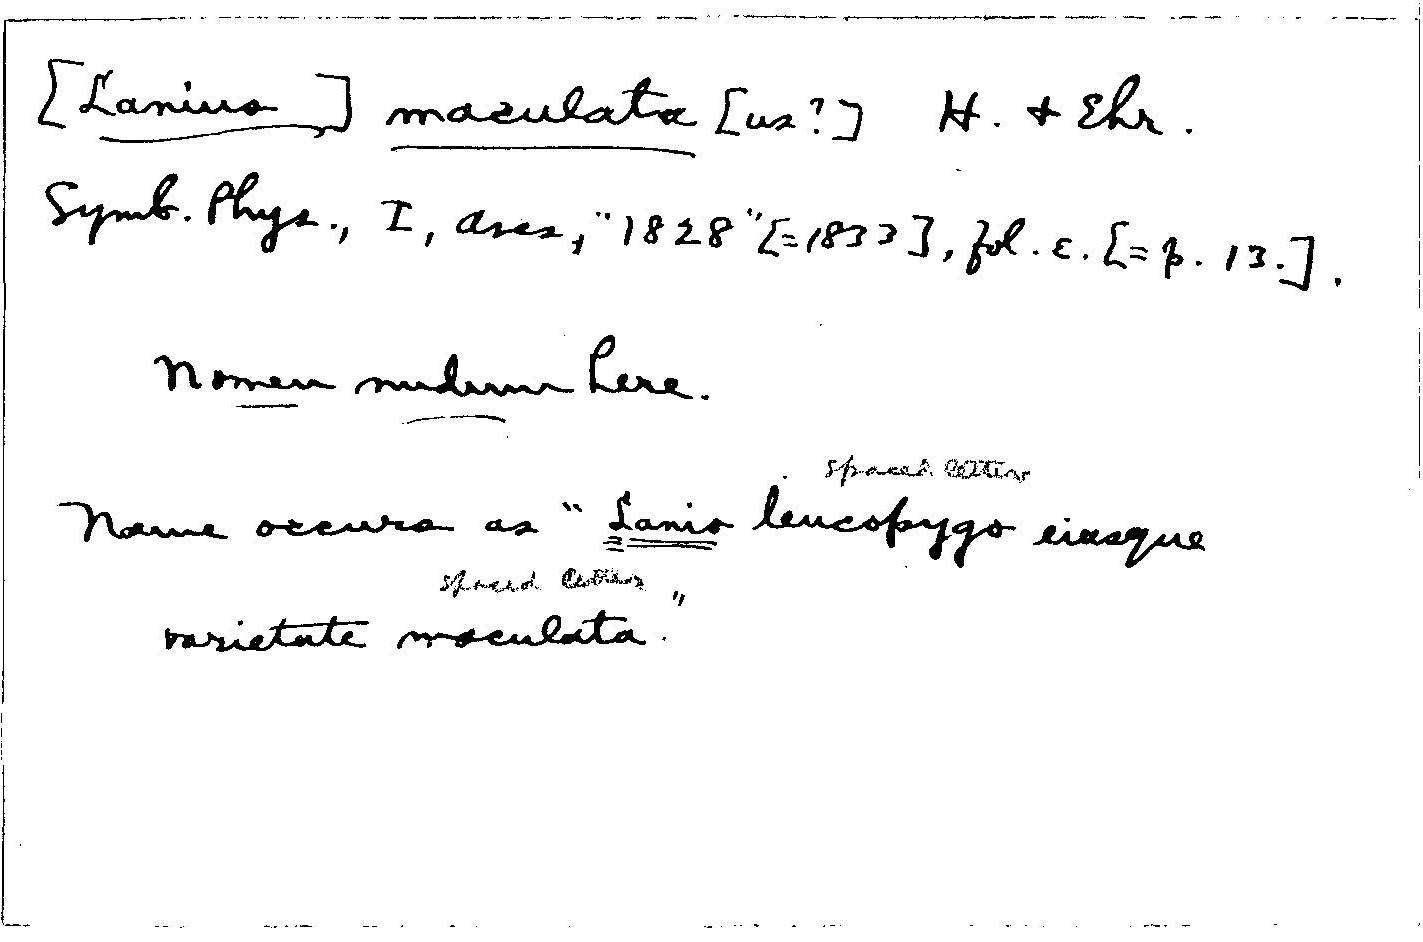 [Lanius] maculata [us?] H. + Ehr.
Symb. Phys., I, Aves, "1828" [=1833], fol. ε. [= p. 13.].
Nomen nudum here.
spaced letters
Name occurs as "Lanio leucopygo eiusque
spaced letters
varietate maculata."